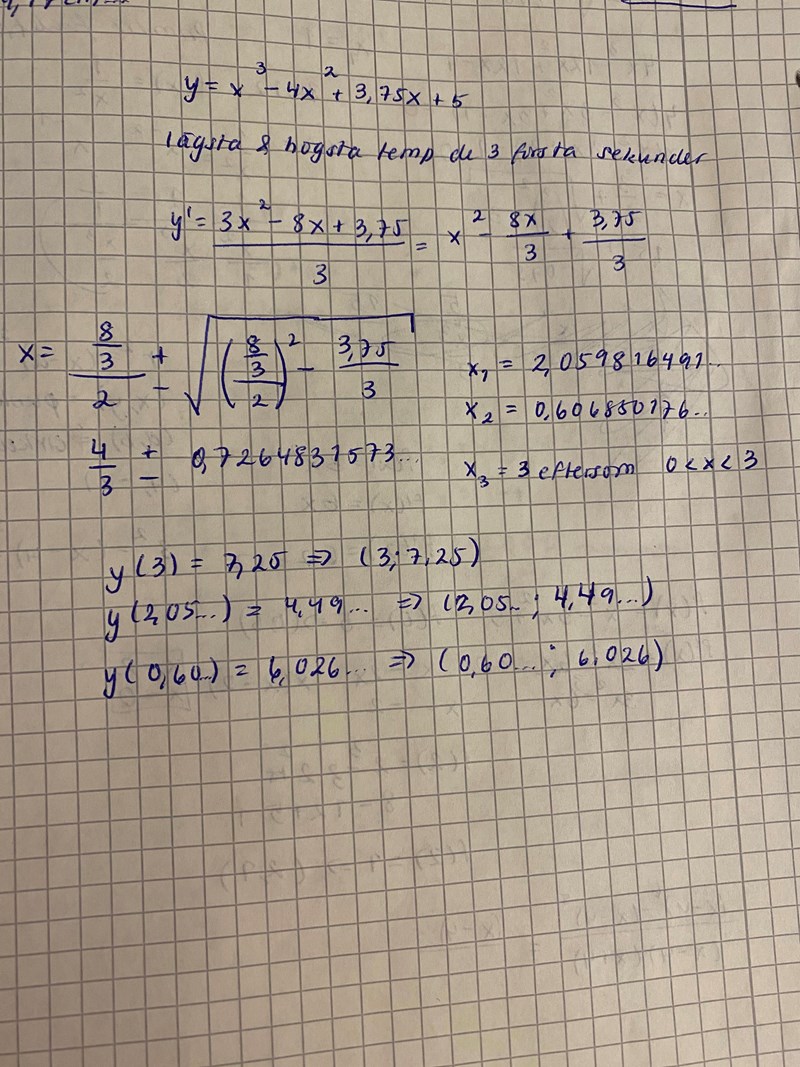 y = x³ - 4x² + 3,75x + 5
lägsta & högsta temp de 3 första sekunder
y' = (3x² - 8x + 3,75)/3 = x² - 8x/3 + 3,75/3
x = (8/3)/2 ± √(((8/3)/2)² - 3,75/3)
x₁ = 2,059816491..
x₂ = 0,606850176..
4/3 ± 0,7264831573...
x₃ = 3 eftersom 0 < x < 3
y(3) = 7,25 => (3; 7,25)
y(2,05...) = 4,49... => (2,05..; 4,49...)
y(0,60..) = 6,026... => (0,60...; 6,026)